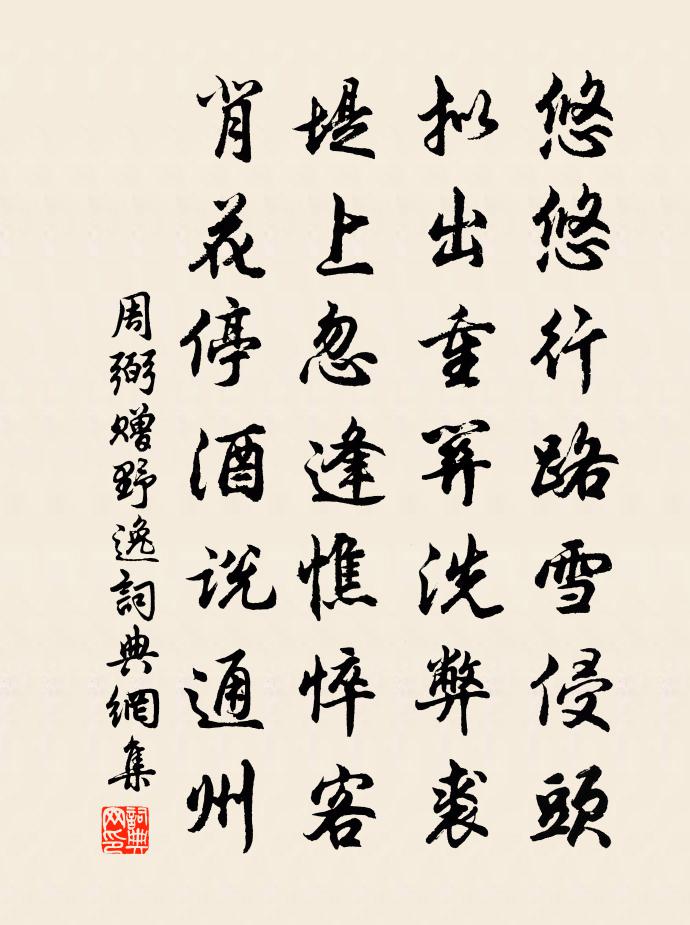 悠悠行路雪侵頭
拟出重關洗弊裘
堤上忽逢憔悴客
背花停酒说通州
周弼贈野逸詞典網集
詞典网印